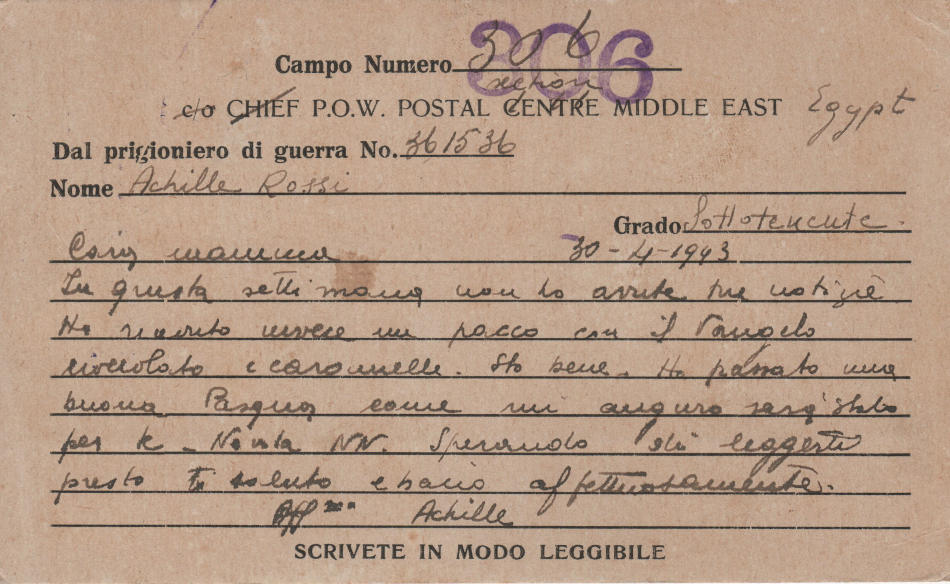 Campo Numero 306
306
section
c/o CHIEF P.O.W. POSTAL CENTRE MIDDLE EAST Egypt
Dal prigioniero di guerra No. 361536
Nome Achille Rossi
Grado Sottotenente
Cara mamma 30-4-1943
In questa settimana non ho avute tue notizie
Ho ricevuto invece un pacco con il Vangelo
cioccolato e caramelle. Sto bene. Ho passato una
buona Pasqua come mi auguro sarà stata
per te - Novità NN. Sperando di leggerti
presto ti saluto e bacio affettuosamente.
Aff Achille
SCRIVETE IN MODO LEGGIBILE